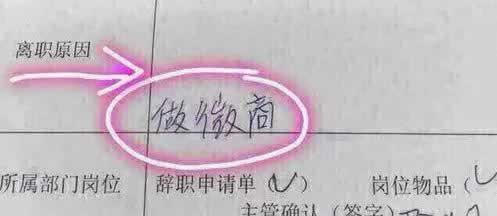 离职原因
做微商
所属部门岗位 辞职申请单（✓） 岗位物品（✓
主管确认（签字）